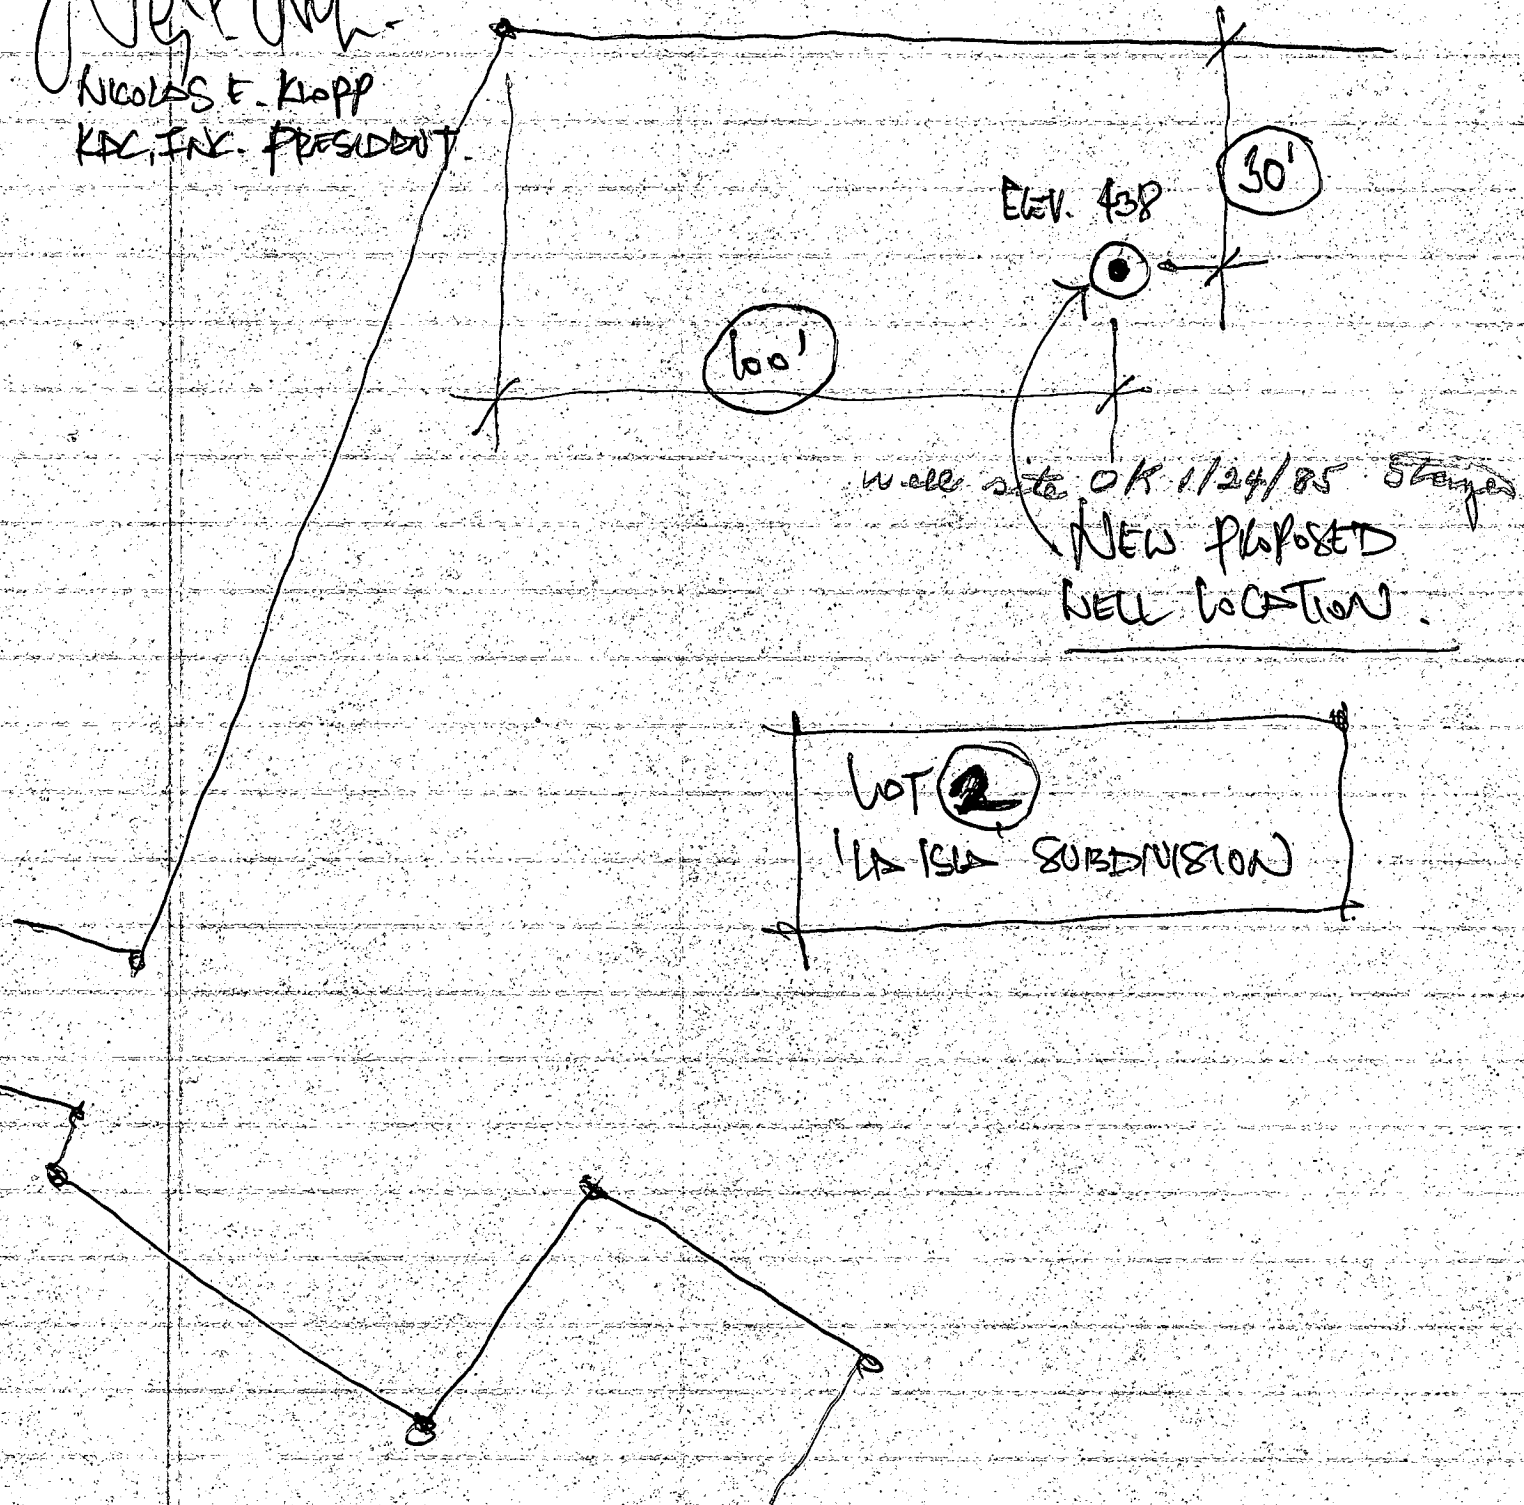 NICOLAS E. KLOPP
KDC, INC. PRESIDENT.
30'
ELEV. 438
100'
well site OK 1/24/85
NEW PROPOSED
WELL LOCATION.
LOT 2
'LA ISLA' SUBDIVISION